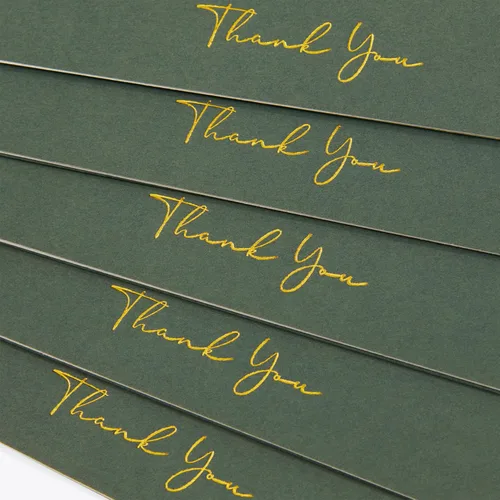 Thank You
Thank You
Thank You
Thank You
Thank You